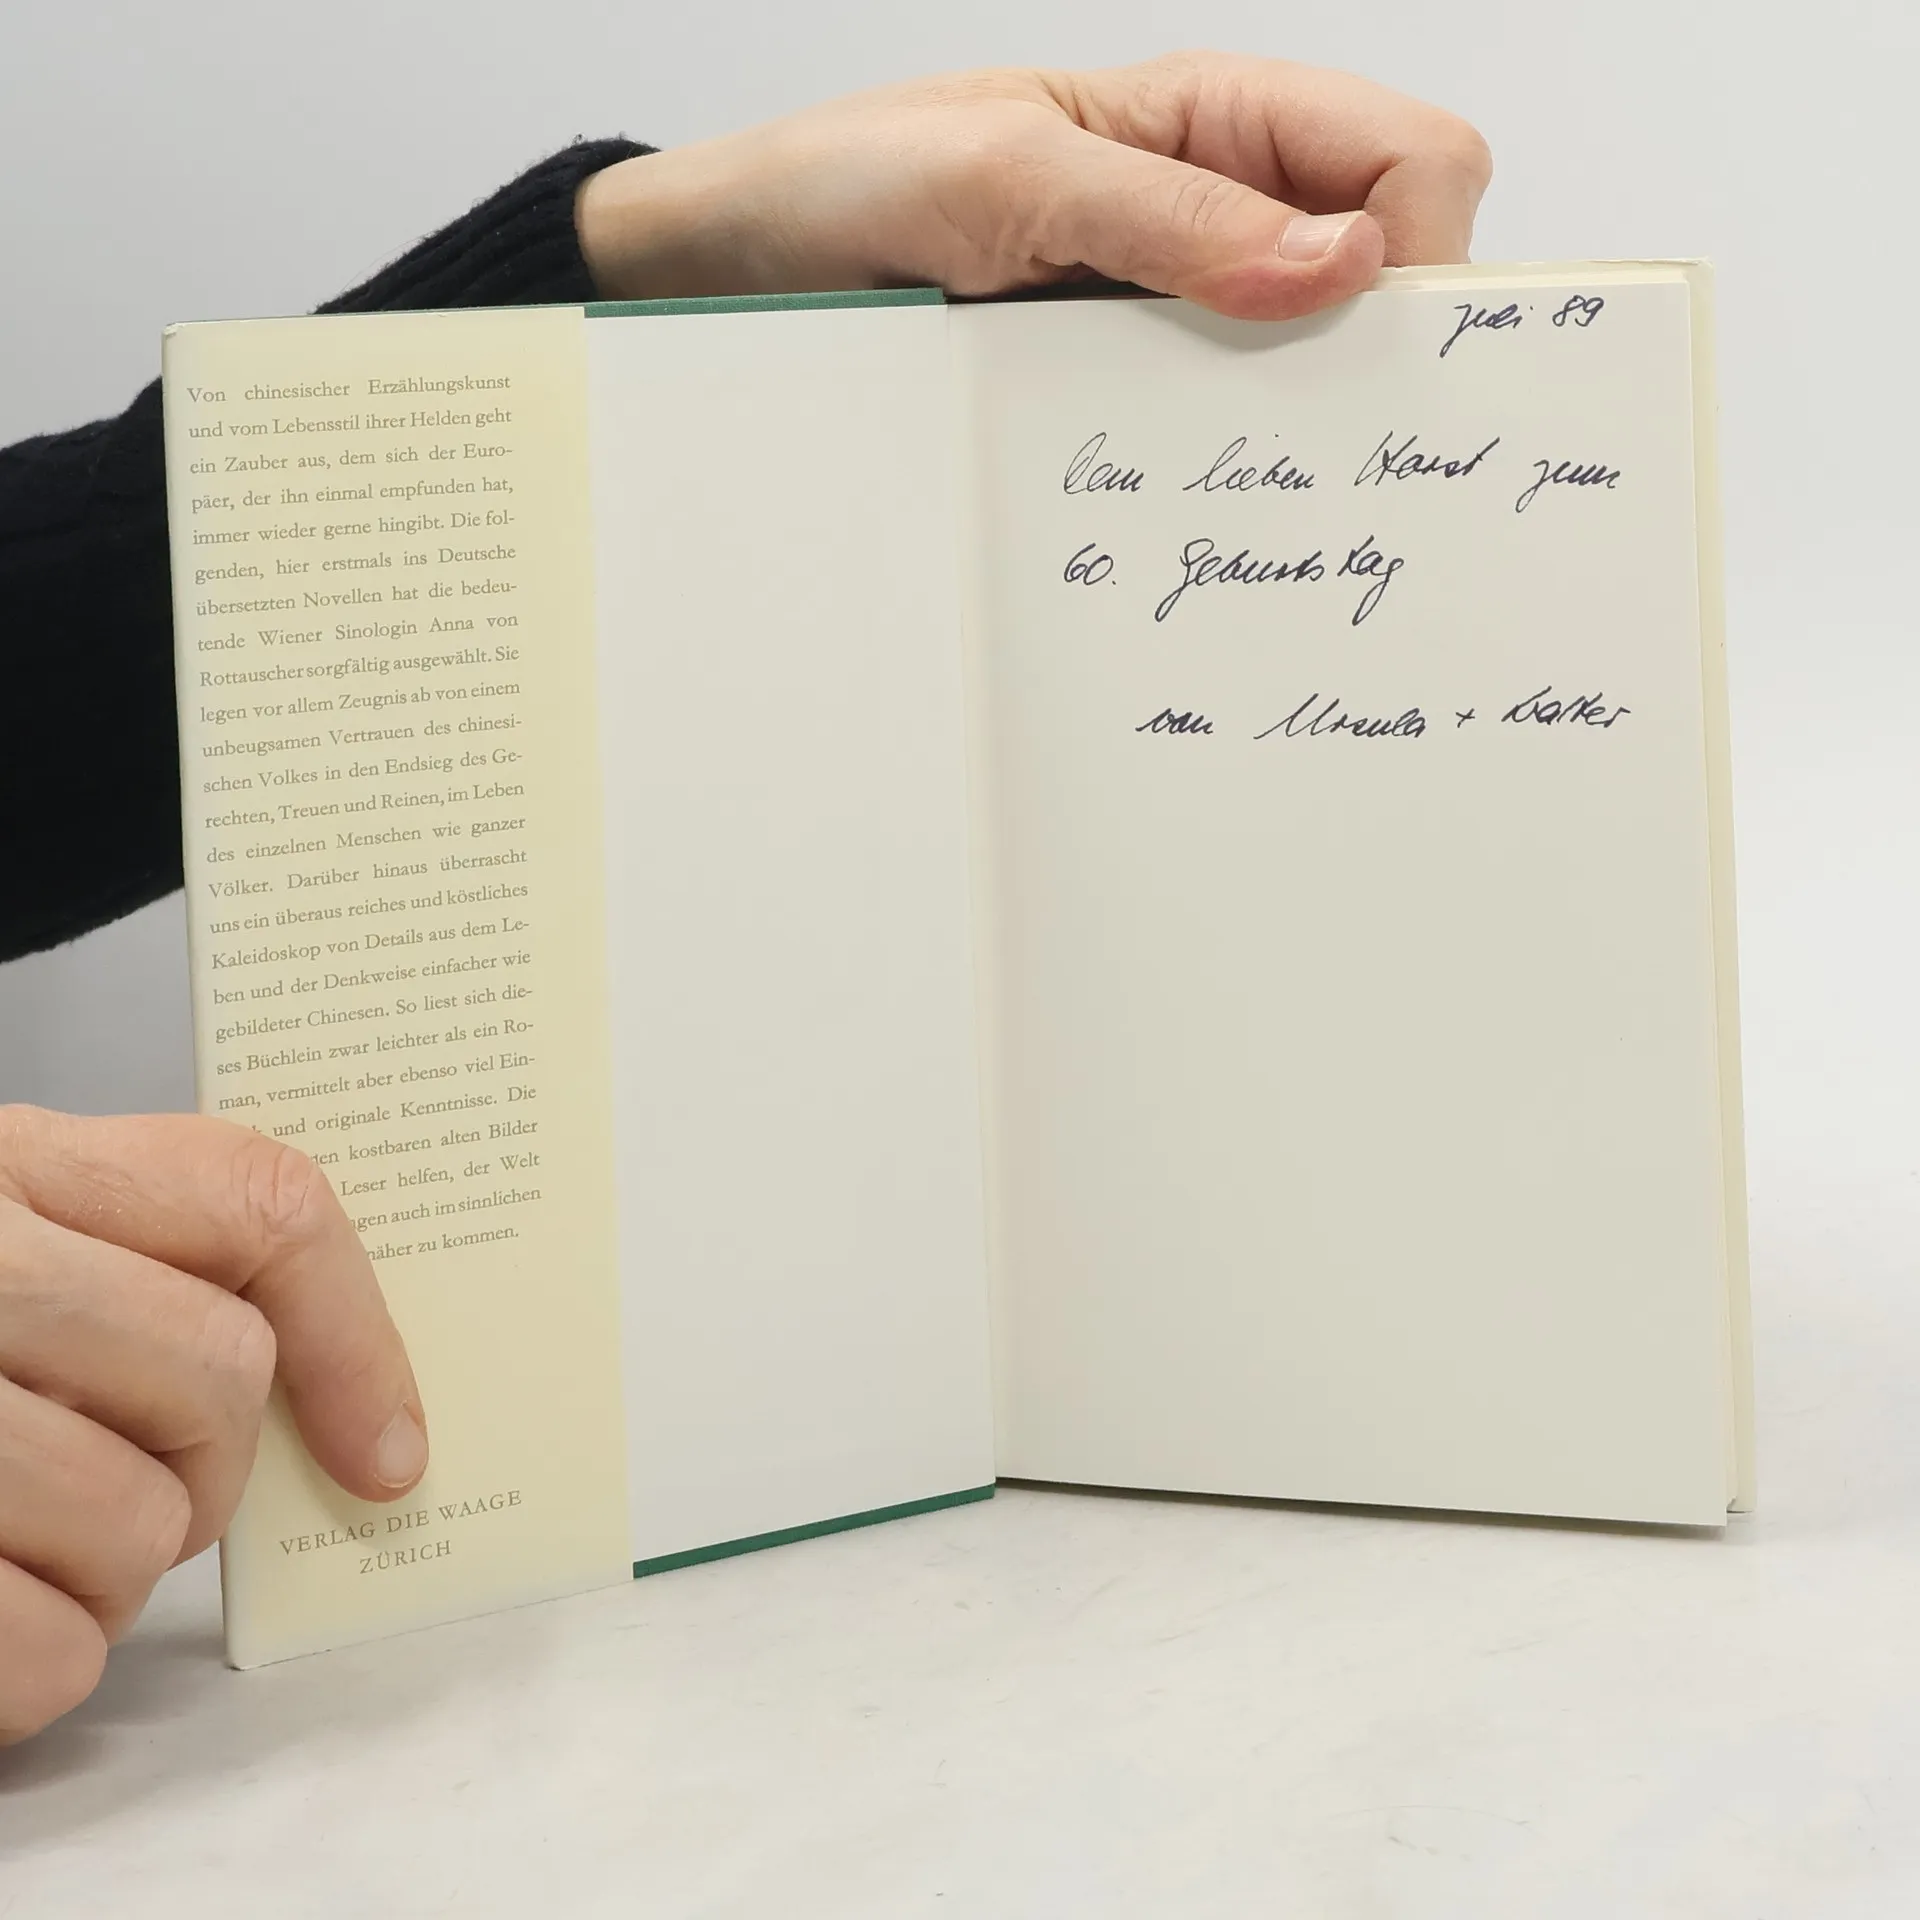 Von chinesischer Erzählungskunst
und vom Lebensstil ihrer Helden geht
ein Zauber aus, dem sich der Euro-
päer, der ihn einmal empfunden hat,
immer wieder gerne hingibt. Die fol-
genden, hier erstmals ins Deutsche
übersetzten Novellen hat die bedeu-
tende Wiener Sinologin Anna von
Rottauscher sorgfältig ausgewählt. Sie
legen vor allem Zeugnis ab von einem
unbeugsamen Vertrauen des chinesi-
schen Volkes in den Endsieg des Ge-
rechten, Treuen und Reinen, im Leben
des einzelnen Menschen wie ganzer
Völker. Darüber hinaus überrascht
uns ein überaus reiches und köstliches
Kaleidoskop von Details aus dem Le-
ben und der Denkweise einfacher wie
gebildeter Chinesen. So liest sich die-
ses Büchlein zwar leichter als ein Ro-
man, vermittelt aber ebenso viel Ein-
und originale Kenntnisse. Die
kostbaren alten Bilder
Leser helfen, der Welt
auch im sinnlichen
näher zu kommen.
VERLAG DIE WAAGE
ZÜRICH
Juli 89
Dem lieben Horst zum
60. Geburtstag
von Ursula + Walter